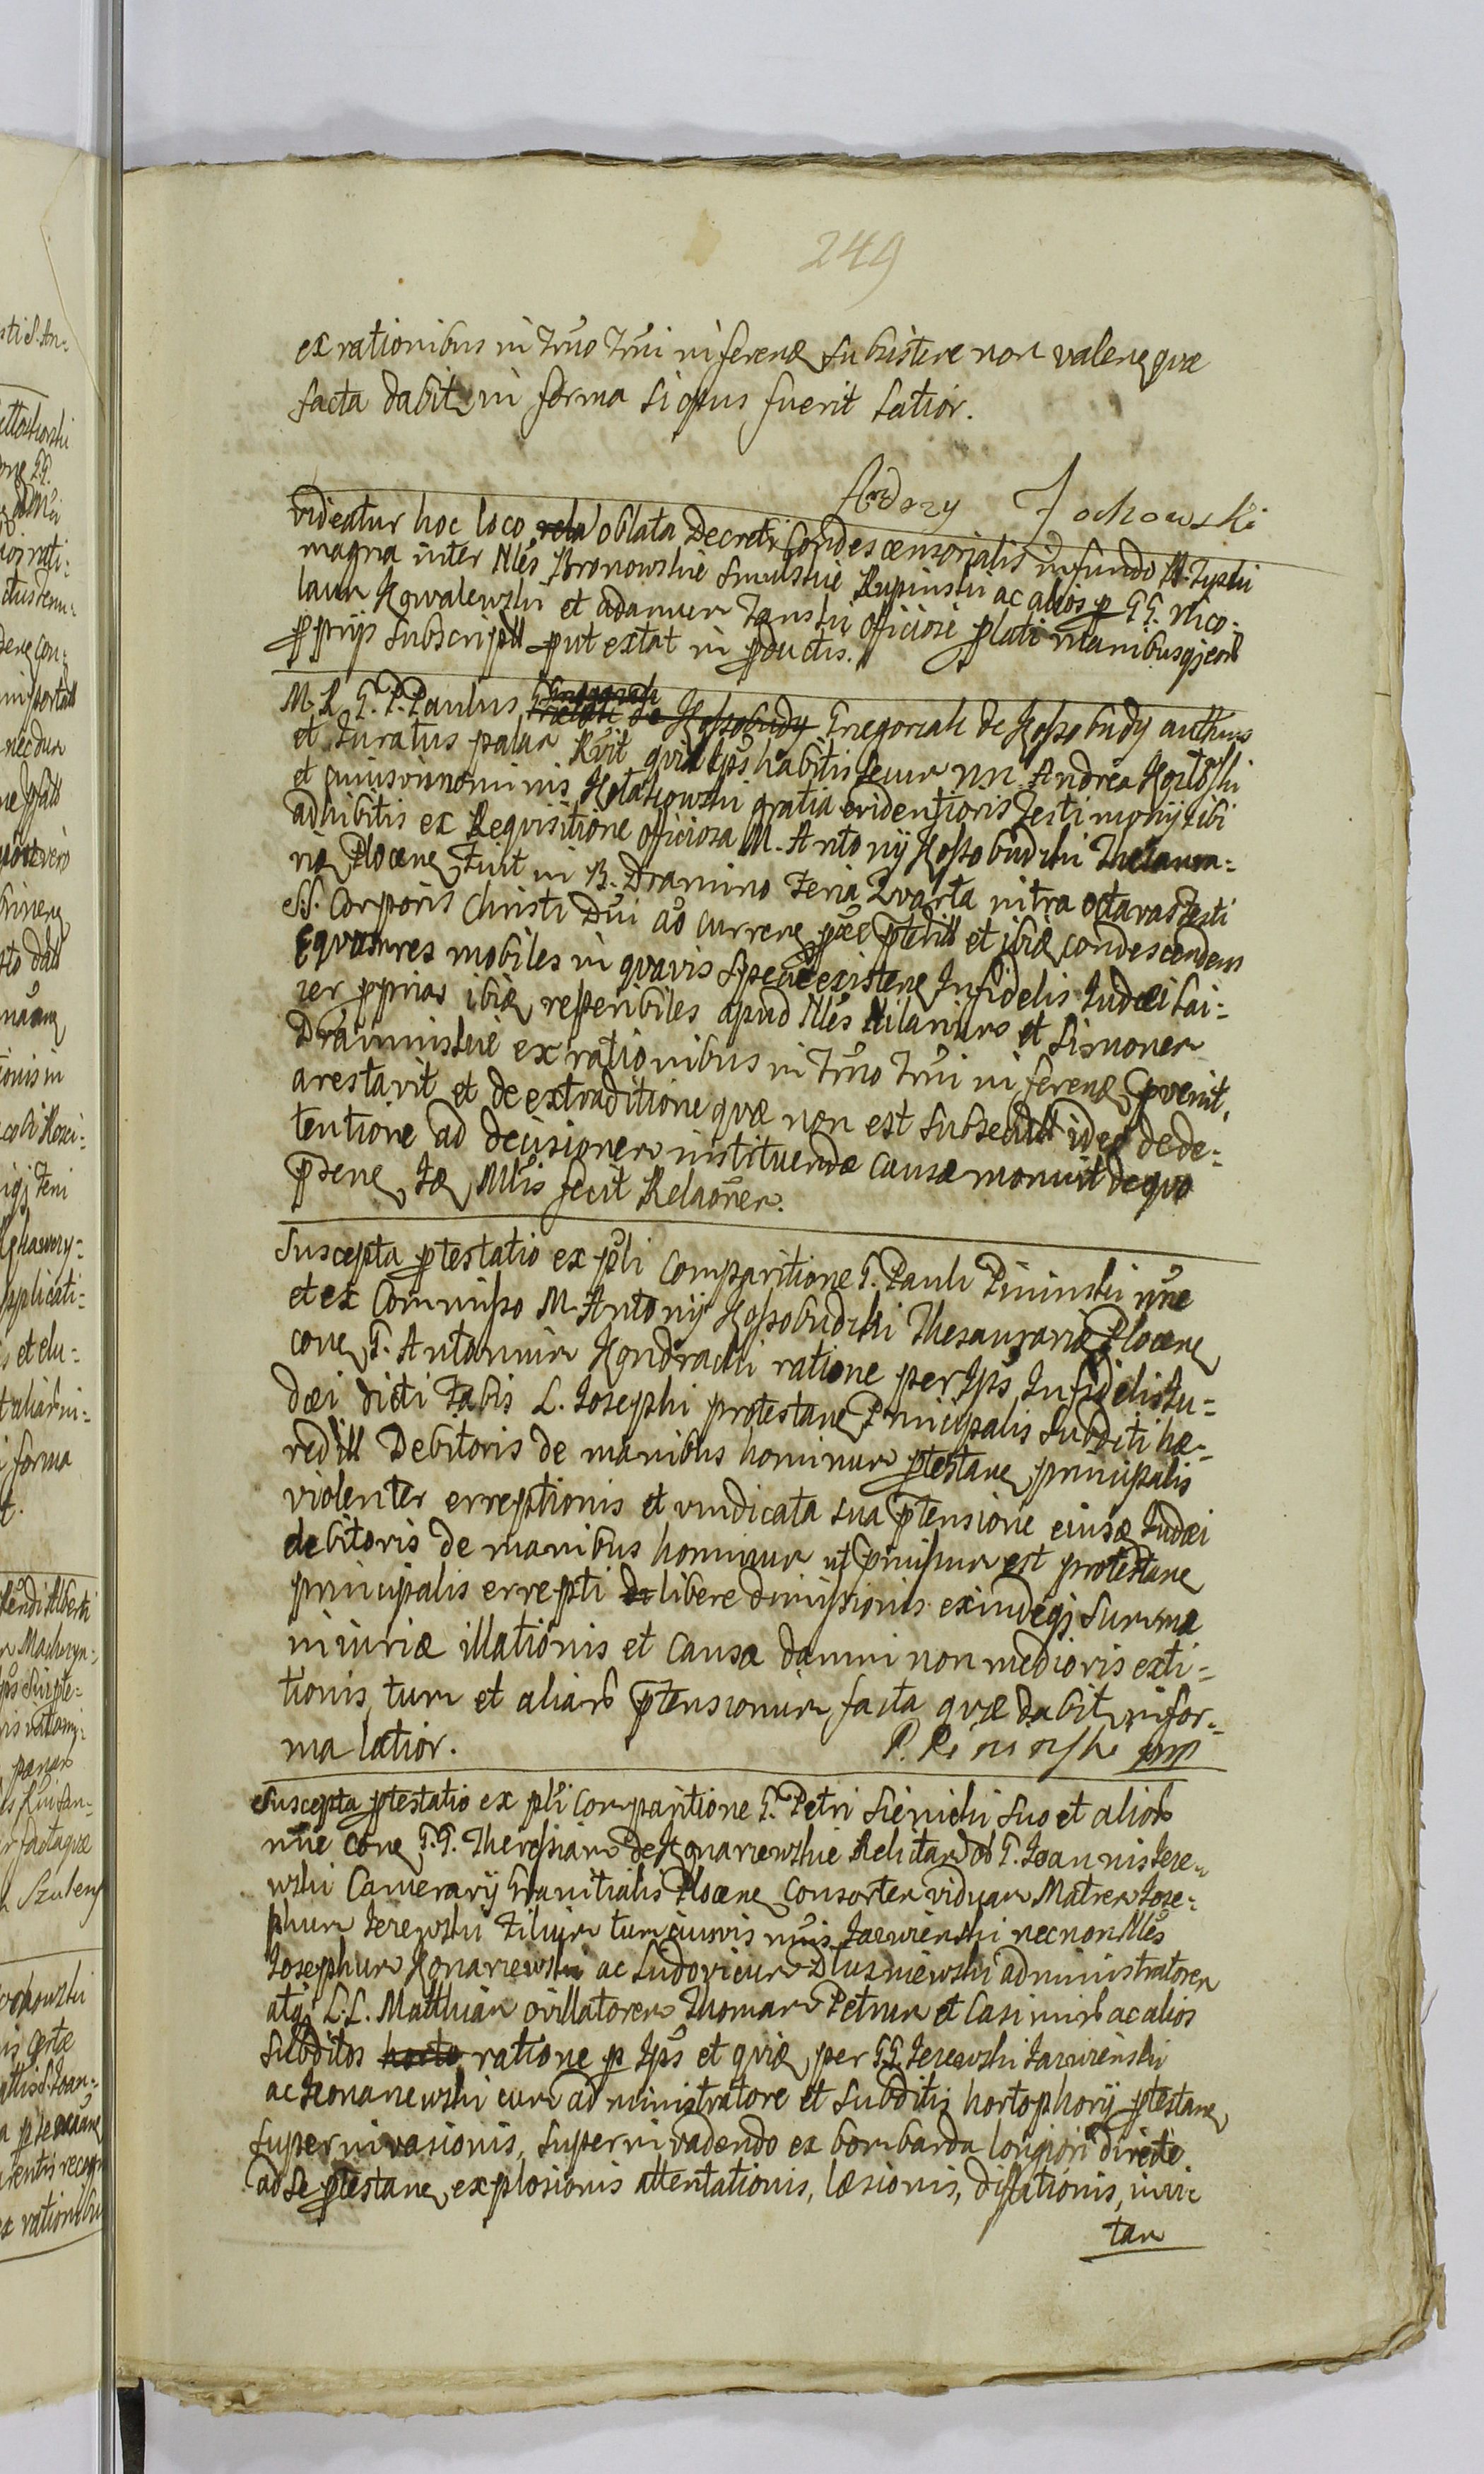 249
ex rationibus in Trno Trni inferenẹ subsistere non valenẹ quæ
facta dabitr in forma si opus fuerit latior.
Andrzy Jochowski
videatur hoc loco rela oblata Decreti Condescensorialis in fundo
magna inter Nlẽs Bronowskie Smulskie Rupinski ac alios p GG. Nico-
laum Kowalewski et adamum Janski officiose plati manibusqʒ eorb
pprijs subscript put extat in pductis.
M. R. G. P. Paulus Gregorali de Kossobudy Gregorali de Kossobudy authus
et Juratus palam Rvit quia Ips habitis secum NN. Andrea
et cuiusvis nominis gratia evidentioris Testimonij sibi
adhibitis ex Requisitione officiosa M. Antonij Kossobudzki Thesaura-
riæ Plocenẹ fuit in B. Dramino Feria Quarta infra octavas Festi
SS. Corporis Christi Dni aõ currenẹ pæterit et ibiæ condescendens
Equum res mobiles in quavis specie existenẹ Infidelis Judæi Lai-
zer pprias ibiæ reperibiles apud Nlẽs Hilarium et Simonem
Draminskie ex rationibus in Trno Trni inferenẹ pvenit,
arestavit et de extraditione quæ non est subsecuta ideo de de-
tentione ad decisionem instituendæ causæ monuit de quo
psenẹ Jæ Mlis fecit Relaõnem.
Suscepta ptestatio ex pli Comparitione G. Pauli Pininski nñe
et ex Commisso M. Antonij Kossobudzki Thesaurarij Plocenẹ
conẹ G. Antonium Kondracki ratione per Ips Infidelis Ju-
dæi dicti Jabis L. Josephi protestanẹ Principalis Subditi hæ-
redit Debitoris de manibus hominum ptestanẹ principalis
violenter erreptionis et vindicata sua ptensione eiusæ Judæi
debitoris de manibus hominum ut pmissum est protestanẹ
principalis errepti de libere dimissionis exindeqʒ summæ
iniuriæ illationis et causæ damni non medioris exti-
tionis tum et aliarb ptensionum facta quæ dabitr in for-
ma latior.
P. Pininski mp
Suscepta ptestatio ex pli Comparitione G. Petri Sienicki suo et aliorb
nñe conẹ G.G. Theressiam de Konarzewskie Relictam G. Joannis Jeze-
wski Camerarij Granitialis Plocenẹ Consortem viduam Matrem Jose-
phum Jezewski Filium tum cuiusvis nñis Jaewienski necnon Nlẽs
Josephum Konarzewski ac Ludovicum Dluzniewski administratorem
atqʒ L.L. Matthiam ovillatorem Thomam Petrum et Casimirb ac alios
subditos horto ratione p Ips et quiæ per GG. Jezewski
ac Konarzewski cum administratore et subditis hortophorij ptestanẹ
superinvasionis, superinvadendo ex bombarda longiori directe
ad se ptestanẹ explosionis attentationis, læsionis, disflationis, invi-
tam